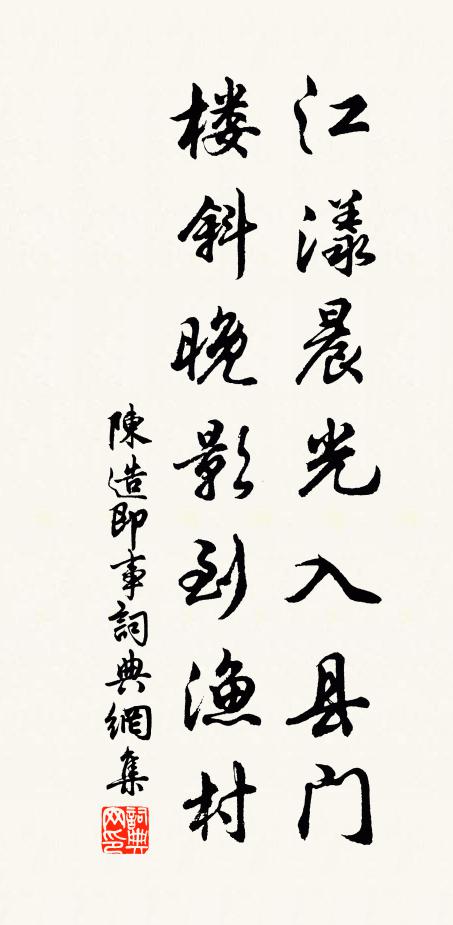 江漾晨光入县门
楼斜晚影到渔村
陳造即事詞典網集
詞典网印